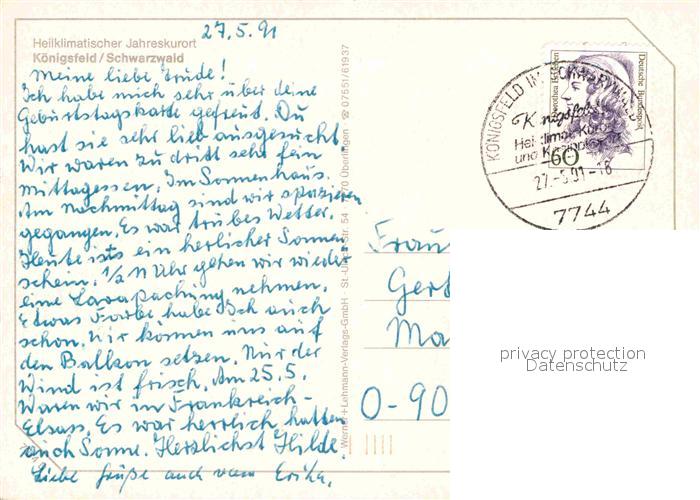 27.5.91
Heilklimatischer Jahreskurort
Königsfeld/Schwarzwald
Meine liebe Trude!
Ich habe mich sehr über deine
Geburtstagskarte gefreut. Du
hast sie sehr lieb ausgesucht.
Wir waren zu dritt sehr fein
Mittagessen. Im Sonnenhaus.
Am Nachmittag sind wir spazieren
gegangen. Es war trübes Wetter.
Heute ists ein herlicher Sonnen-
schein. 1/2 11 Uhr gehen wir wieder
eine nehmen.
Etwas Farbe habe Ich auch
schon. Wir können uns auf
den Balkon setzen. Nur der
Wind ist frisch. Am 25.5.
Waren wir in Frankreich-
Elsass. Es war herrlich hatten
auch Sonne. Herzlichst Hilde
Liebe Grüße auch vom Erika.
Werner+Lehmann-Verlags-GmbH · St.-Ulrich-Str. 54 · 7770 Überlingen ☎ 07551/61937
Deutsche Bundespost
60
KÖNIGSFELD IM SCHWARZWALD
Königsfeld
Heilklimat. Kurort
und Kneippkurort
27.-5.91-18
7744
Frau
Gert
Ma
O-90
privacy protection
Datenschutz